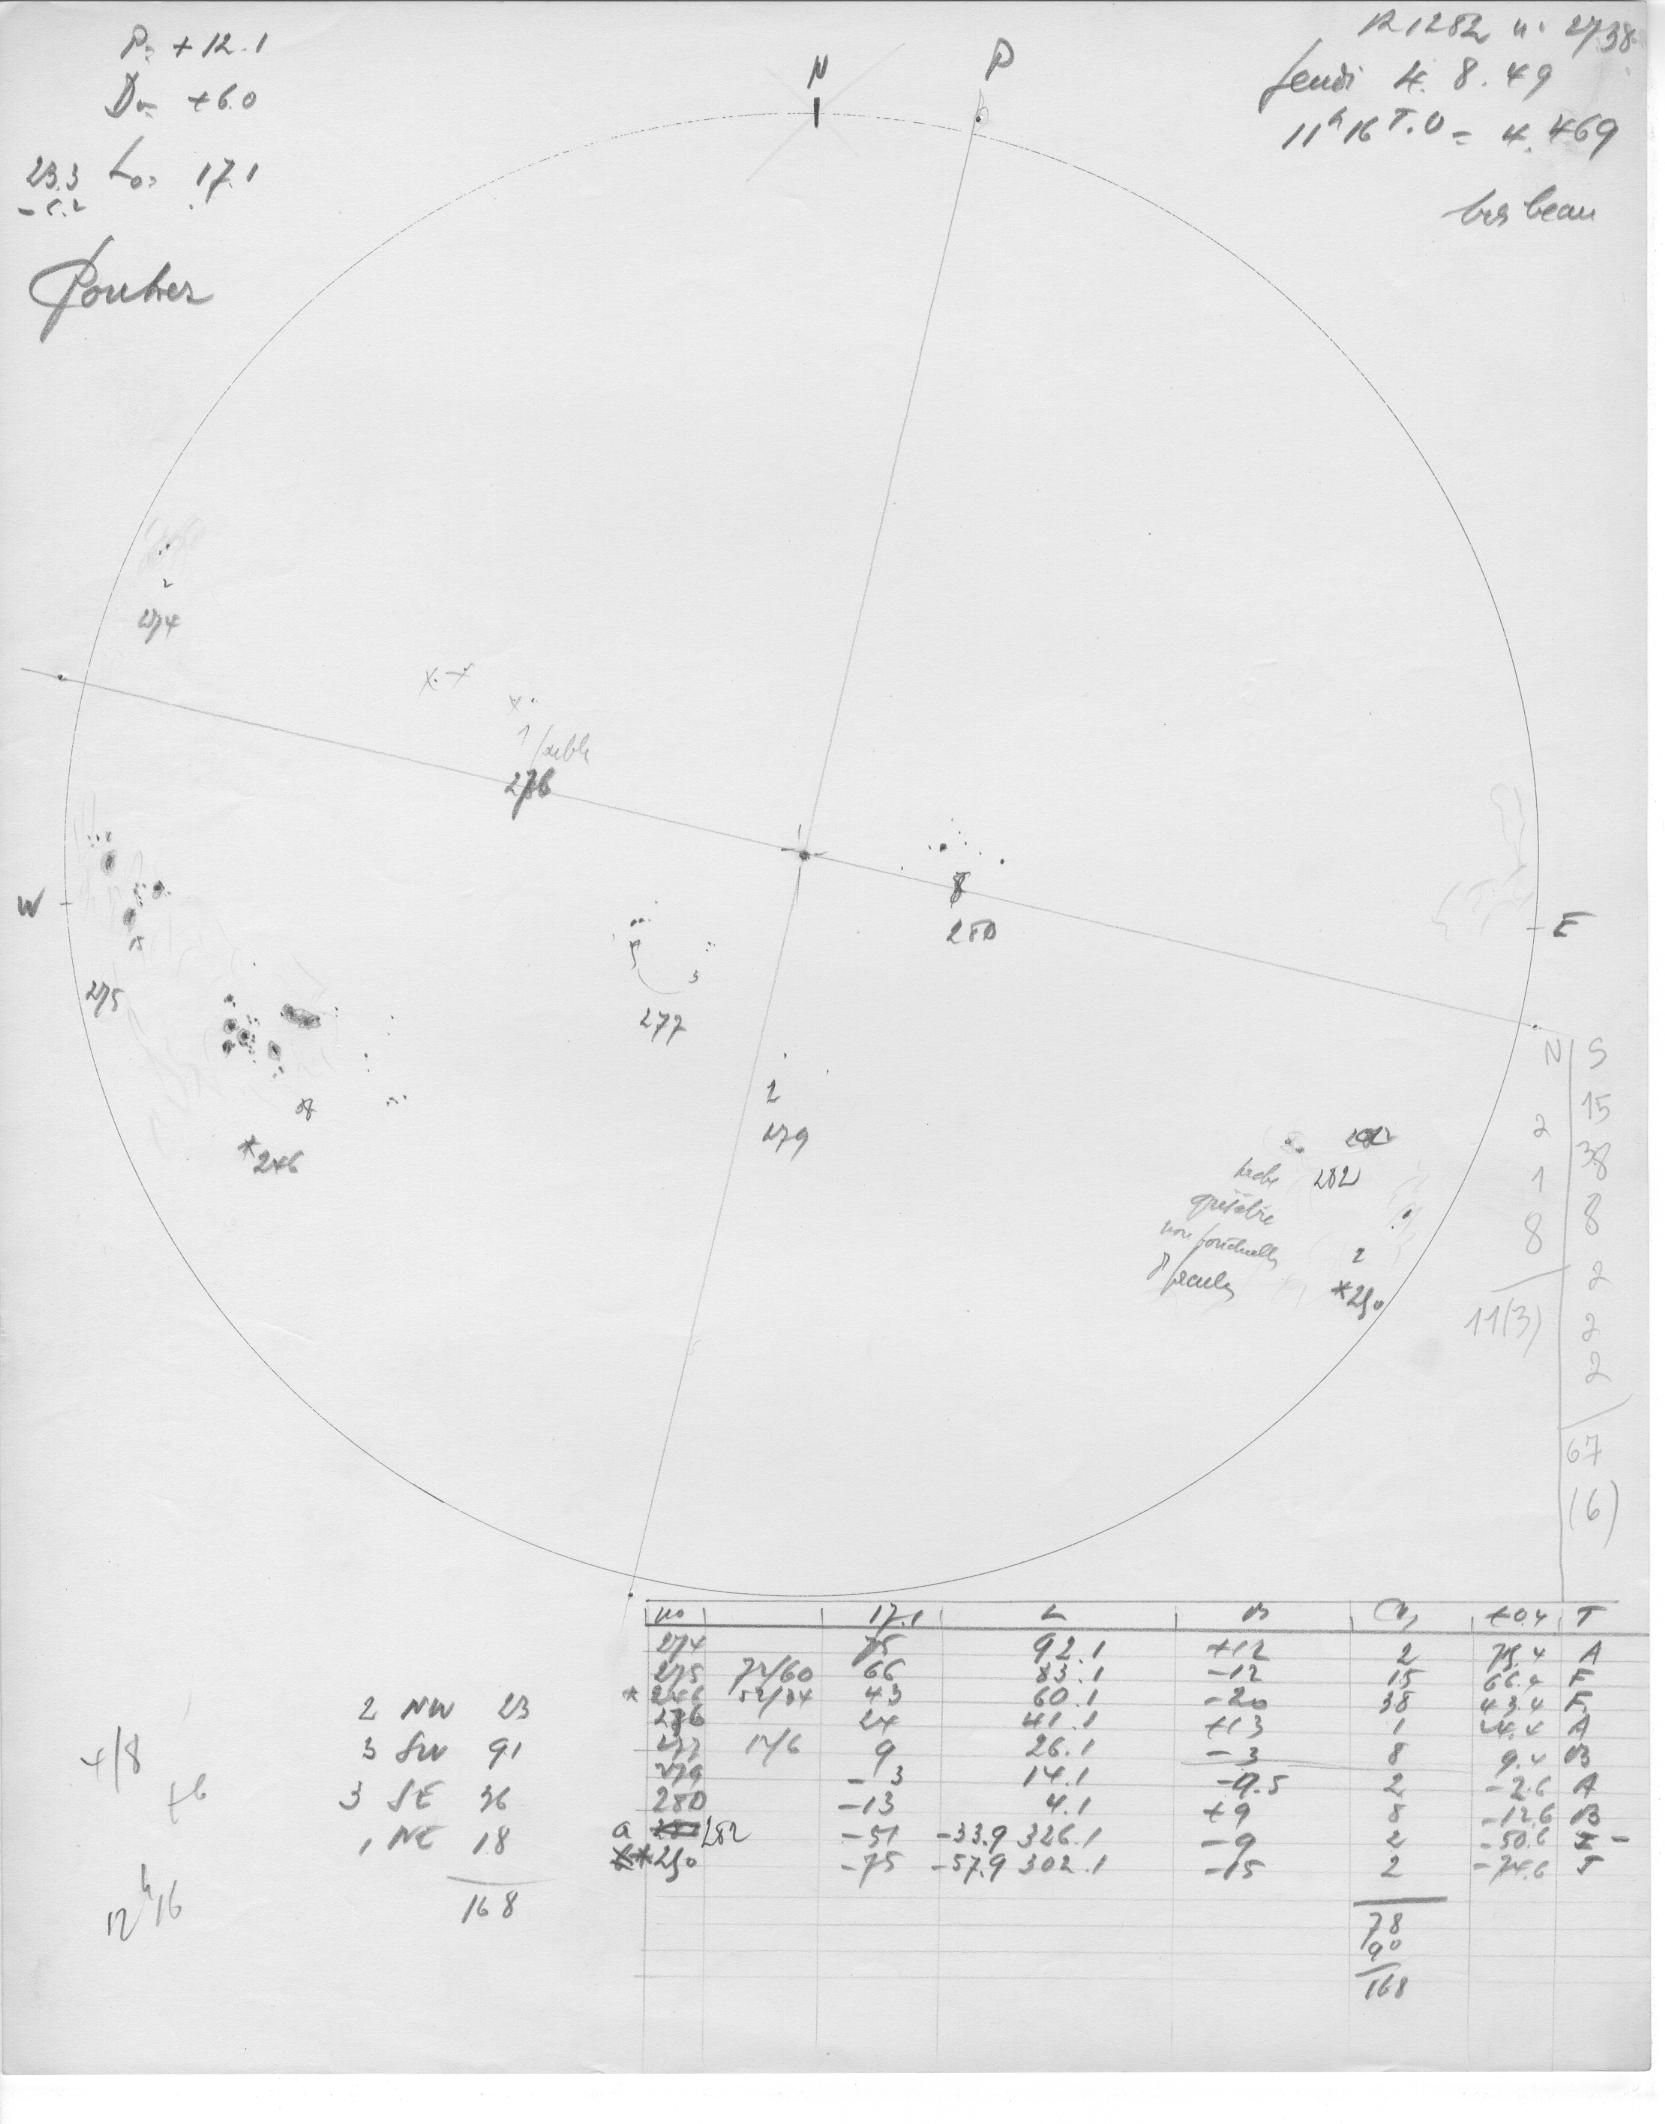 P= +12.1
D= +6.0
23.3 Lo= 17.1
R 1282 n: 2738
Jeudi 4.8.49
11h16 T.U = 4.469
très beau
N
P
2
274
1 faible
276
W
15
275
8
280
E
3
277
2
279
38
*246
282
tache
grisâtre
non ponctuelle
2
*250
N | S
15
2
38
1
8
8
2
11(3)
2
2
67
(6)
no 17.1 L B +0.4 T
274 75 92.1 +12 2 75.4 A
275 72/60 66 83.1 -12 15 66.4 F
* 246 52/34 43 60.1 -20 38 43.4 F
276 24 41.1 +13 1 24.4 A
277 12/6 9 26.1 -3 8 9.4 B
279 -3 14.1 -9.5 2 -2.6 A
280 -13 4.1 +9 8 -12.6 B
a 282 -51 -33.9 326.1 -9 2 -50.6 I -
*250 -75 -57.9 302.1 -15 2 -74.6 J
78
90
168
2 NW 23
3 SW 91
3 SE 36
1 NE 18
168
4/8
+6
12h16